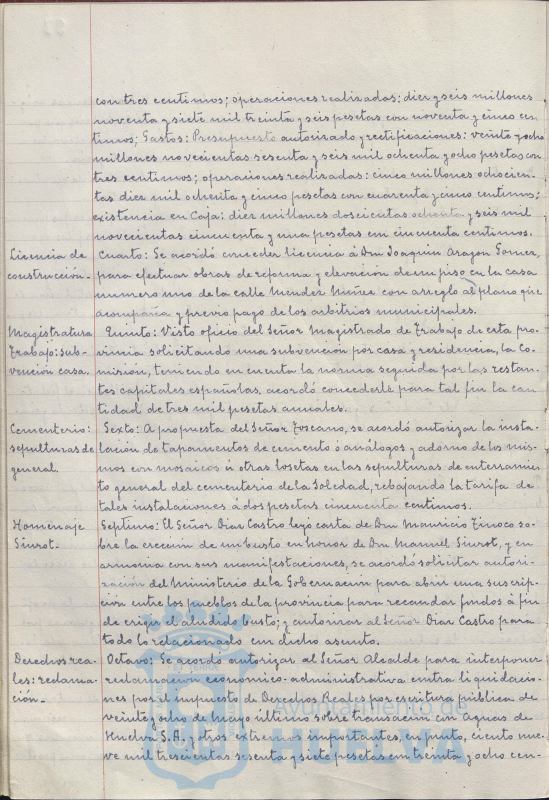 con tres centimos; operaciones realizadas: diez y seis millones
noventa y siete mil treinta y seis pesetas con noventa y cinco cen-
timos; Gastos: Presupuesto autorizado y rectificaciones: veinte y ocho
millones novecientas sesenta y seis mil ochenta y ocho pesetas con
tres centimos; operaciones realizadas: cinco millones ochocien-
tas diez mil ochenta y cinco pesetas con cuarenta y cinco centimos;
existencia en Caja: diez millones doscientas ochenta y seis mil
novecientas cincuenta y una pesetas con cincuenta centimos.
Licencia de construcción.-
Cuarto: Se acordó conceder licencia á Don Joaquin Aragon Gomez,
para efectuar obras de reforma y elevación de un piso en la casa
numero uno de la calle Mendez Nuñez con arreglo al plano que
acompaña y previo pago de los arbitrios municipales.
Magistratura Trabajo: sub-
vención casa.
Quinto: Visto oficio del Señor Magistrado de Trabajo de esta pro-
vincia solicitando una subvención por casa y residencia, la Co-
misión, teniendo en cuenta la norma seguida por las restan-
tes capitales españolas, acordó concederle para tal fin la can-
tidad de tres mil pesetas anuales.
Cementerio:
sepulturas de
general.
Sexto: A propuesta del Señor Toscano, se acordó autorizar la insta-
lación de tapamentos de cemento ó análogos y adorno de los mis-
mos con mosaicos ú otras losetas en las sepulturas de enterramien-
to general del cementerio de la Soledad, rebajando la tarifa de
tales instalaciones á dos pesetas cincuenta centimos.
Homenaje
Siurot.-
Septimo: El Señor Diaz Castro leyó carta de Don Mauricio Tinoco so-
bre la erección de un busto en honor de Don Manuel Siurot, y en
armonia con sus manifestaciones, se acordó solicitar autori-
zación del Ministerio de la Gobernación para abrir una suscrip-
ción entre los pueblos de la provincia para recaudar fondos á fin
de erigir el aludido busto; y autorizar al Señor Diaz Castro para
todo lo relacionado con dicho asunto.
Derechos rea-
les: reclama-
ción.-
Octavo: Se acordó autorizar al Señor Alcalde para interponer
reclamación económico-administrativa contra liquidacio-
nes por el impuesto de Derechos Reales por escritura pública de
veinte y ocho de Mayo último sobre transacción con Aguas de
Huelva S.A. y otros extremos importantes, en junto, ciento nue-
ve mil trescientas sesenta y siete pesetas con treinta y ocho cen-
Ayuntamiento de
HUELVA